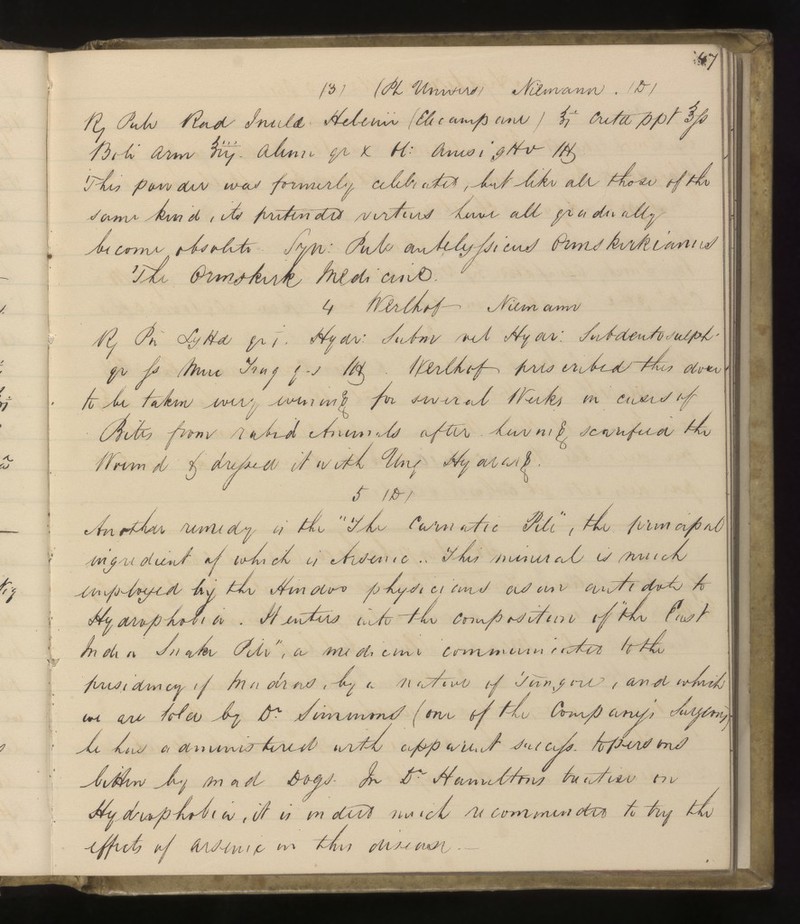 47
(3) (Ph Univers) Niemann. (D)
R Pulv Rad Inulæ Helenii (Elecampane) ʒi Cretæ ppt ℥ſs
Boli Arm ʒiij. Alum gr x Ol: Anisi gttv M
This powder was formerly celebrated, but like all those of the
same kind, its pretended virtues have all gradually
become obsolete. Syn: Pulv antelyſsicus Ormskirkianus
The Ormskirk Medicine.
4 Werlhof Niemann
R Pv Lyttæ gr i. Hydr: Subm vel Hydr: Subdeutosulph.
gr ſs Muc Trag q-s M. Werlhof prescribed this dose
to be taken every evening for several Weeks in cases of
Bites from rabid Animals after having scarified the
Wound & dreſsed it with Ung Hydrarg.
5 (D)
Another remedy is the "The Carnatic Pill", the principal
ingredient of which is Arsenic.. This mineral is much
employed by the Hindoo physicians as an antidote to
Hydrophobia. It enters into the composition of "the East
India Snake Pill", a medicine communicated to the
presidency of Madras, by a native of Tanjore, and which
we are told by Dr Simmons (one of the Company's Surgeons)
he has administered with apparent succeſs to persons
bitten by mad Dogs. In Dr Hamiltons treatise on
Hydrophobia, it is indeed much recommended to try the
effects of arsenic in this disease.—